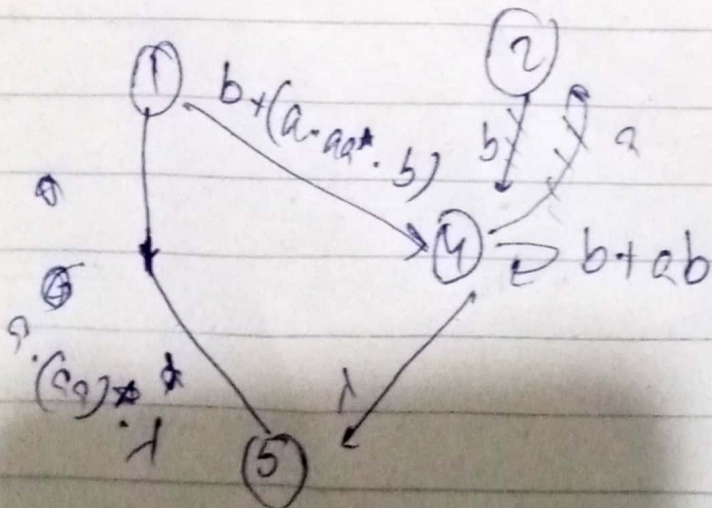 1
2
b+(a.aa*.b)
b
a
4
b+ab
a.(aa)*
.λ
λ
5